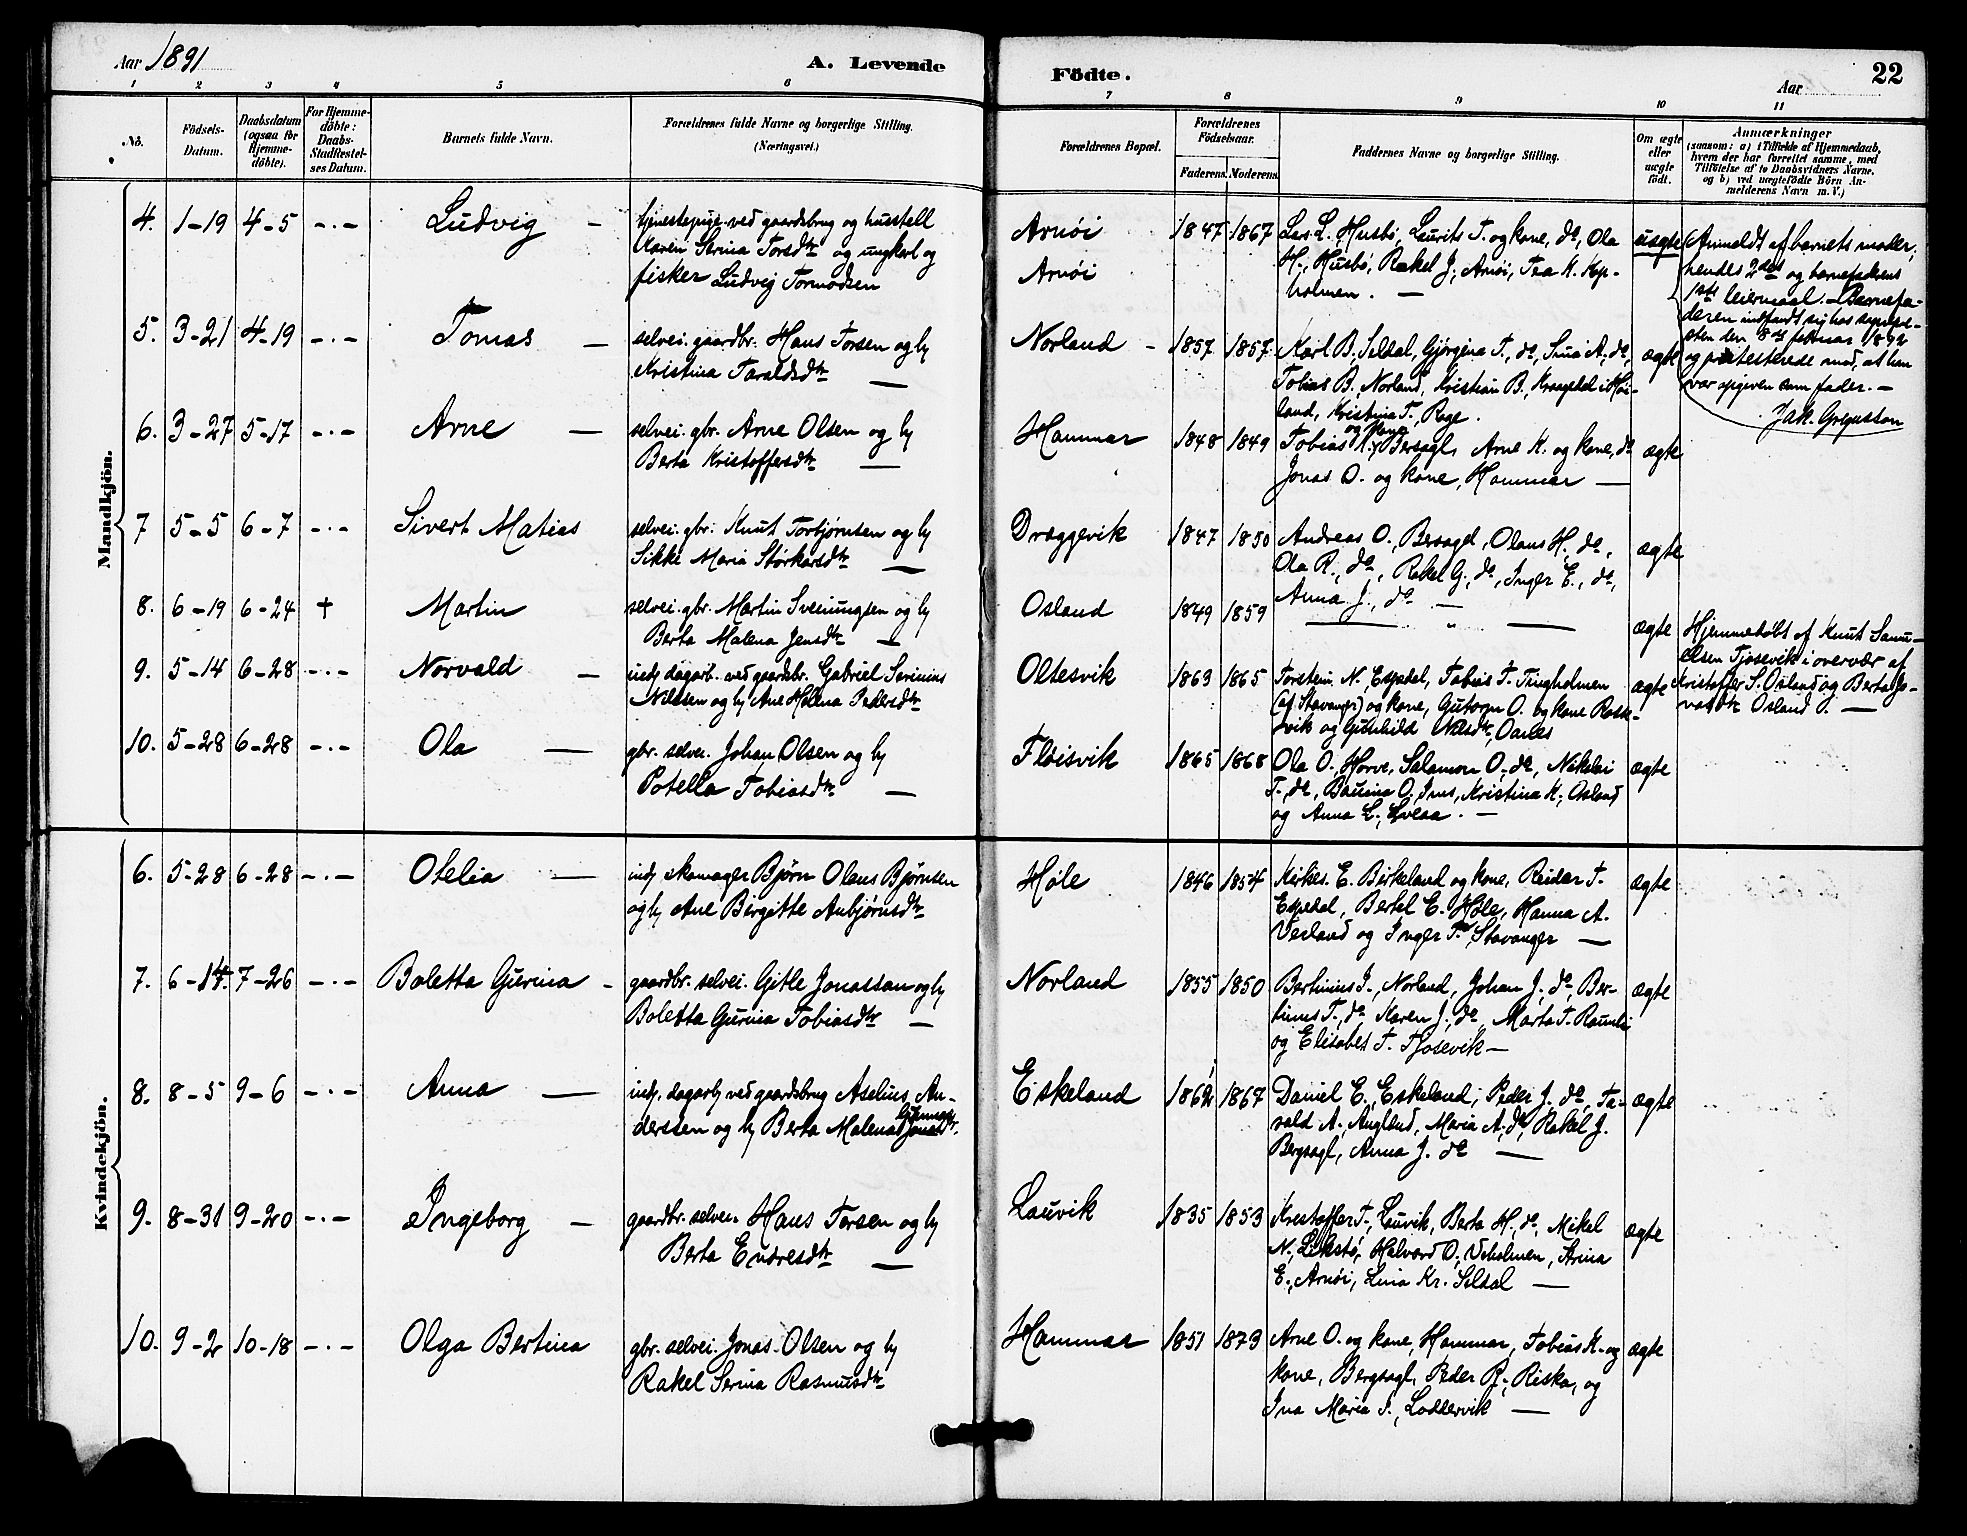 Aar 1891
A. Levende
Födte.
Aar
22
1 2 3 4 5 6 7 8 9 10 11
No.
Födsels-
Datum.
Daabsdatum
(ogsaa for
Hjemme-
döbte).
For Hjemme-
döbte:
Daabs-
Stadfæstel-
ses Datum.
Barnets fulde Navn.
Forældrenes fulde Navne og borgerlige Stilling.
(Næringsvei.)
Forældrenes Bopæl.
Forældrenes
Födselsaar.
Faderens. Moderens.
Faddernes Navne og borgerlige Stilling.
Om ægte
eller
uægte
födt.
Anmærkninger
(saasom: a) i Tilfælde af Hjemmedaab,
hvem der har forrettet samme, med
Tilföielse af to Daabsvidners Navne.
og b) ved uægtefödte Börn An-
melderens Navn m. V.)
Mandkjön.
4. 1-19 4-5 -·- Ludvig -
tjenestepige ved gaardsbrug og husstell
Karen Serina Torsdtr og ungkarl og
fisker Ludvig Tormodsen
Arnöi
Arnöi
1847 1867
Lars L. Husbö, Laurits T. og kone, do, Ola
H., Husbö, Rakel J., Arnöi, Tea K.
holmen. -
uægte
(Anmeldt af barnets moder,
hendes 2det og barnefaderens
1ste leiermaal. - Barnefa-
deren indfandt sig hos sognepre-
sten den 8de februar 1892
og protesterede mod, at han
var opgiven som fader. -
Jak. Gregusson
5. 3-21 4-19 -·- Tomas -
selvei. gaardbr. Hans Torsen og h
Kristina Taraldsdtr -
Norland -
1857 1857
Karl B. Seldal, Gjörgina T., do, Sina A., do,
Tobias B., Norland, Kristian B., Kragedal i Höi-
land, Kristina T., Rage.
ægte
6. 3-27 5-17 -·- Arne -
selvei. gbr. Arne Olsen og h
Berta Kristoffersdtr -
Hammar
1848 1849
og kone
Tobias K., Bersagl, Arne K. og kone, do
Jonas O. og kone, Hammar -
ægte
7 5-5 6-7 -·- Sivert Matias
selvei. gbr. Knut Torbjørnsen og h
Sikke Maria Storkarsdtr -
Dreggevik
1847 1850
Andreas O., Bersagel, Olaus H., do,
Ola R., do, Rakel G., do, Inger E., do,
Anna J., do -
ægte
8. 6-19 6-24 + Martin
selvei. gbr. Martin Sveinungsen og h
Berta Malena Jensdtr -
Osland
1849 1859
- " -
ægte
Hjemmedöbt af Knut Samu-
elsen Tjosevik i overvær af
Kristoffer S. Osland og Berta
Osland. -
9. 5-14 6-28 -·- Norvald -
indh. dagarb. ved gaardsbr. Gabriel Serinius
Nilssen og h Ane Helena Pedersdtr
Oltesvik
1863 1865
Torstein N., Espedal, Tobias T. Tingholmen
(af Stavanger) og kone, Gutorm O. og kone Roske-
vik og Gunhild Nilsdtr, Oanes
ægte
10. 5-28 6-28 -·- Ola -
gbr. selvei. Johan Olsen og h
Potella Tobiasdtr -
Flöisvik
1865 1868
Ola O., Horve, Salamon O., do, Nikolai
T., do, Bauina O., Ims, Kristina K., Osland
og Anna L. -
ægte
Kvindekjön.
6. 5-28 6-28 -·- Otelia -
indh skomager Bjørn Olaus Bjørnsen
og h Ane Birgitte Anbjørnsdtr
Høle
1846 1854
E. Birkeland og kone, Reidar T.
Espedal, Bertel E. Høle, Hanna A.
Verland og Inger T., Stavanger -
ægte
7. 6-14. 7-26 -·- Boletta Gurina -
gaardbr. selvei. Gitle Jonassan og h
Boletta Gurina Tobiasdtr -
Norland
1855 1850
Bertinius J., Norland, Johan J., do, Ber-
tinus T., do Karen J., do, Marta T. Raunli
og Elisabet T. Tjosevik -
ægte
8. 8-5 9-6 -·- Anna -
indh. dagarb ved gaardsbrug Aselius An-
derssen og h Berta Malena
Eskeland
1862 1867
Daniel E., Eskeland, Peder J. do, Ta-
rald A. Augland, Maria A., do, Rakel J.
Bergsagl, Anna J. do -
ægte
9. 8-31 9-20 -·- Ingeborg -
gaardbr. selvei. Hans Torsen og h
Berta Endresdtr -
Lauvik
1835 1853
Kristoffer T., Lauvik, Berta H., do, Mikel
N., Halvard O., Usholmen, Arina
E., Arnöi, Lina Kr. Seldal -
ægte
10. 9-2 10-18 -·- Olga Bertina
gbr. selvei. Jonas Olsen og h
Rakel Serina Rasmusdtr
Hammar
1851 1873
Arne O. og kone, Hammar, Tobias K. og
kone, Bergsagl, Peder R., Riska, og
Ina Maria S., Loddervik -
ægte